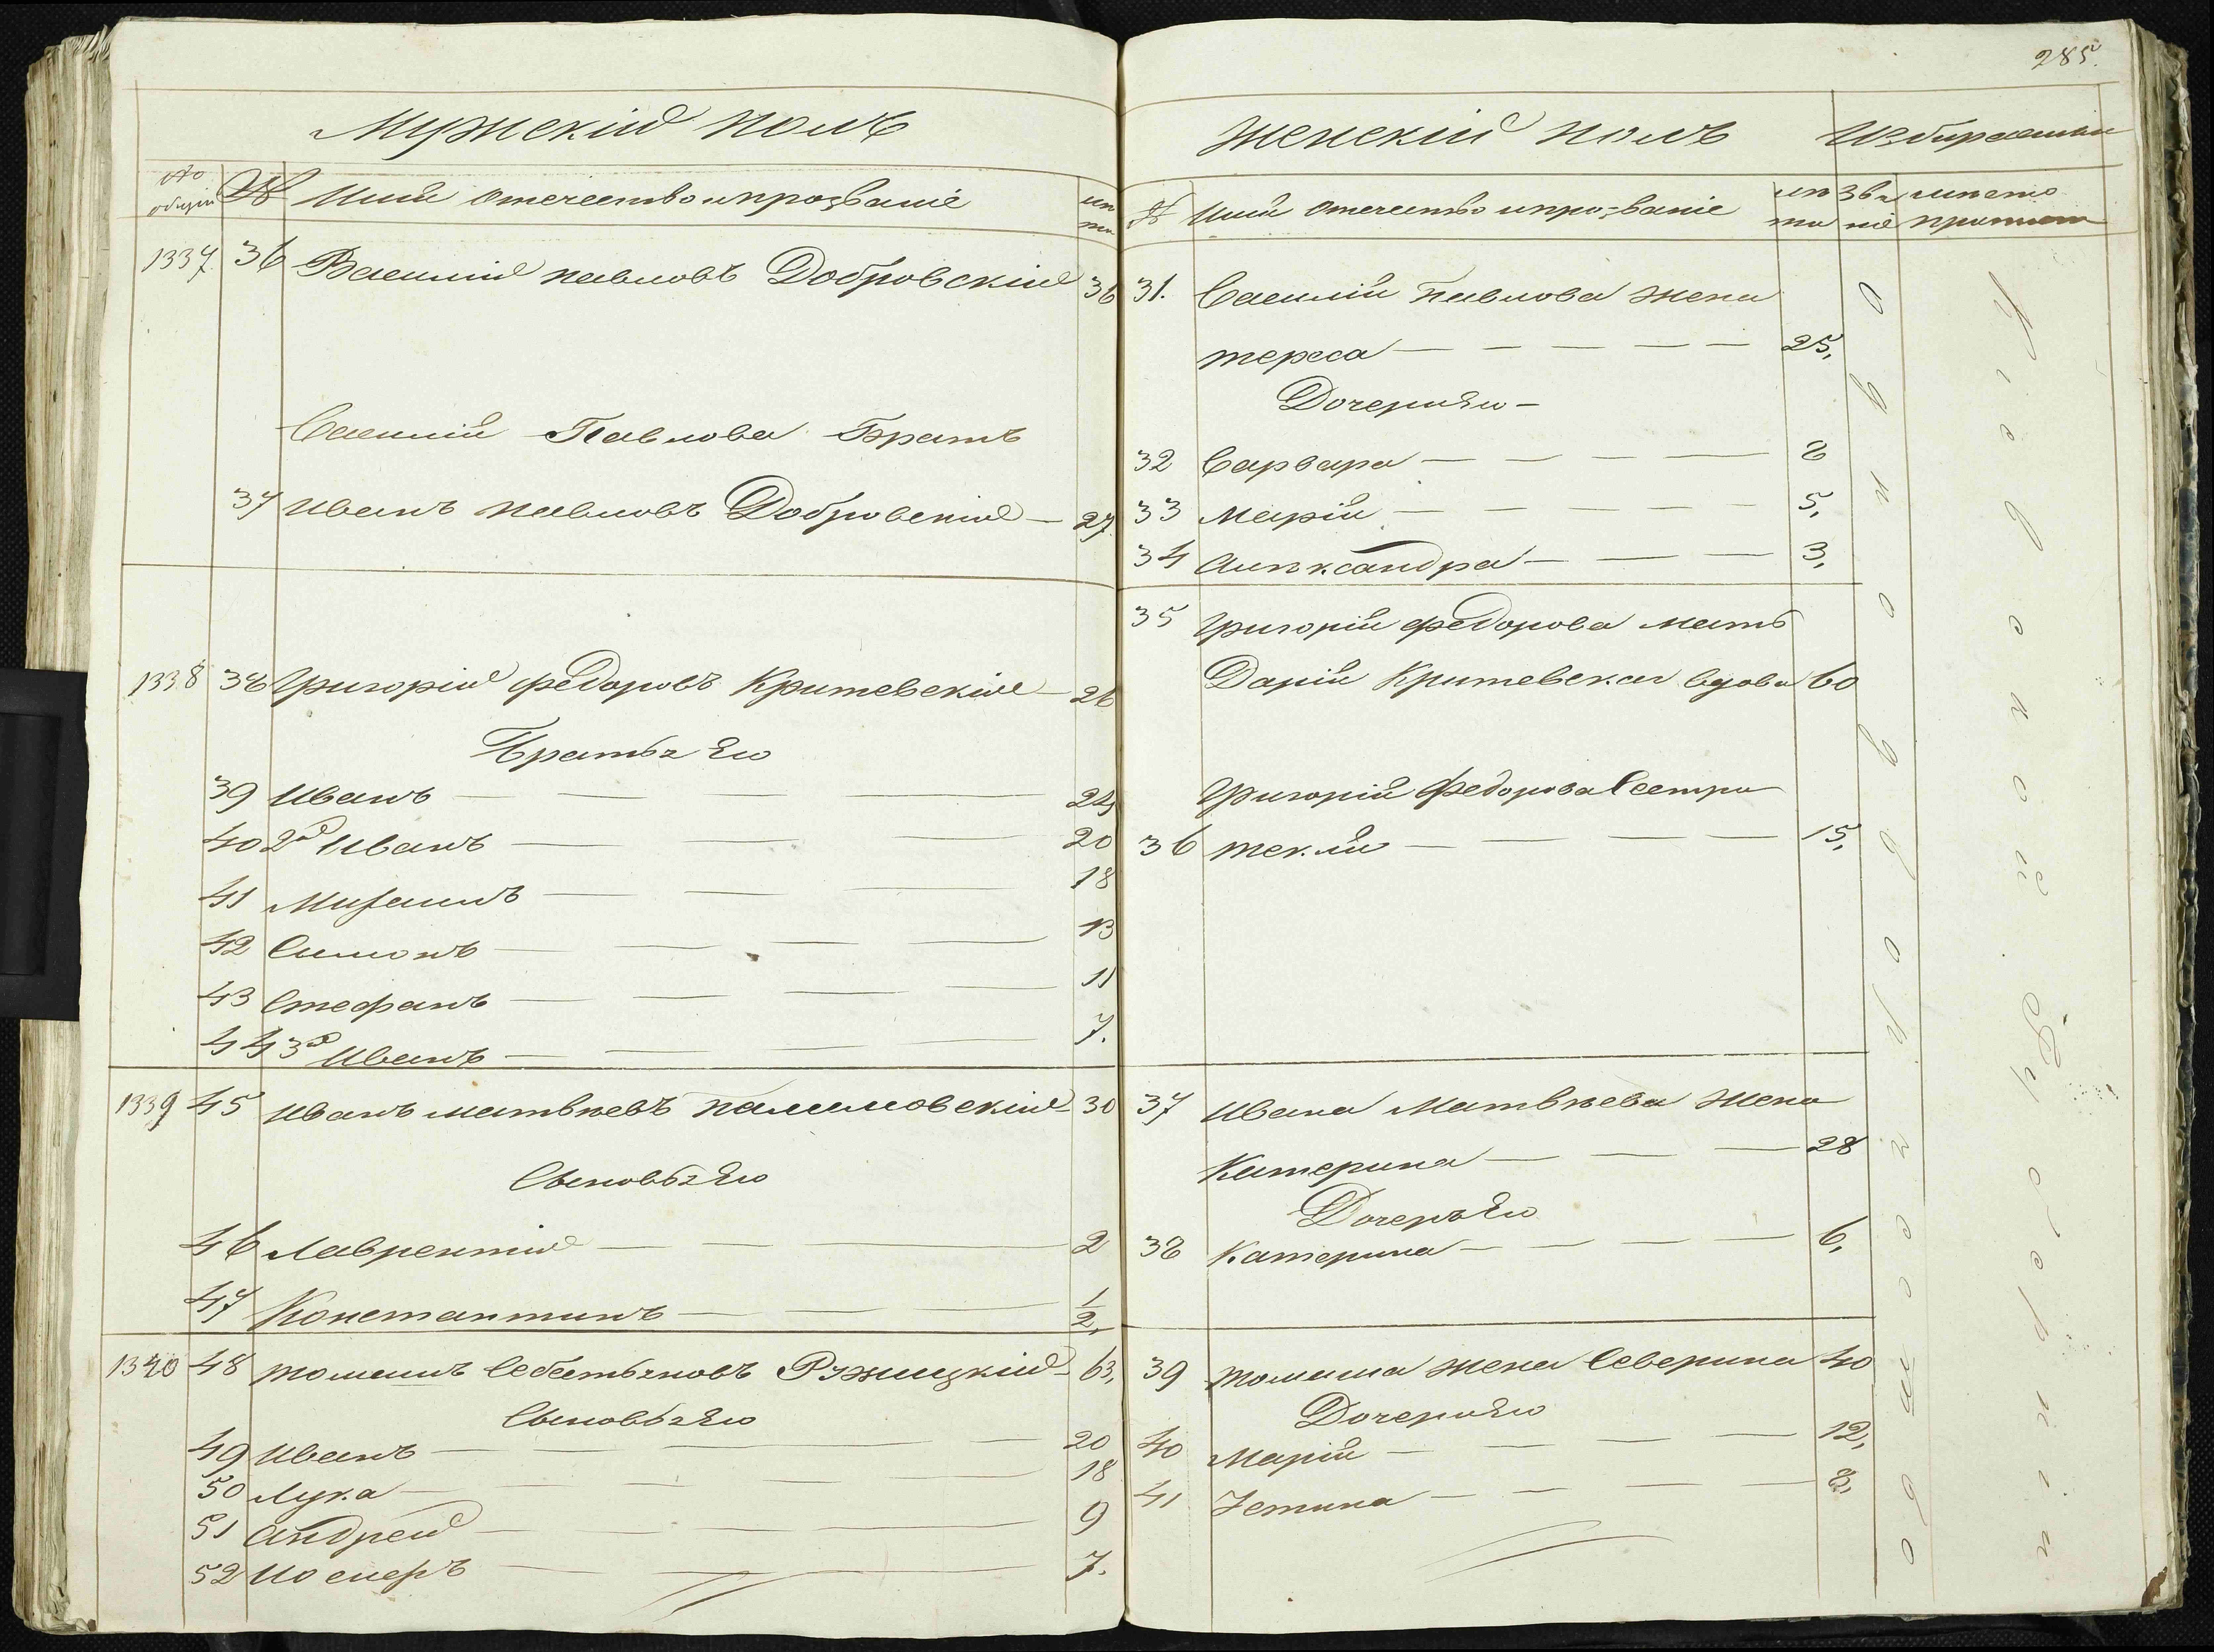 285.
Мужескій полъ
No общій № Имя отечество и прозваніе лѣта
1337. 36 Василій павловъ Добровскій 36
Василія Павлова Братъ
37 Иванъ павловъ Добровскій — 27
1338 38 Григорій федоровъ Критевскій — 26
Братья Его
39 Иванъ — — — — 24
40 2й Иванъ — — — 20
41 Михаилъ — — — 18
42 Симонъ — — — — 13
43 Стефанъ — — — — 11
44 3й Иванъ — — — — 7.
1339 45 Иванъ матвѣевъ 30
Сыновья Его
46 Лаврентій — — — 2
47 Константинъ — — — 1/2,
1340 48 томашъ Себастьяновъ Ружицкій — 63,
Сыновья Его
49 Иванъ — — — — — 20
50 Лука — — — — 18
51 Андрей — — — — 9
52 Иосифъ — — — 7.
Женскій полъ
№ Имя отечество и прозваніе лѣта званіе мѣсто
31. Василія Павлова жена
тереса — — — — — 25,
Дочери Его —
32 Варвара — — — — 8
33 Марія — — — — — 5,
34 Александра — — — 3,
35 Григорія федорова мать
Дарія Критевская вдова 60
Григорія Федорова Сестра
36 текля — — — — 15,
37 Ивана Матвѣева жена
Катерина — — — 28
Дочерь Его
38 Катерина — — — — 6,
39 томаша жена Северина 40
Дочери Его
40 Марія — — — — — 12,
41 Устина — — — — 8,
Кіевской Губерніи